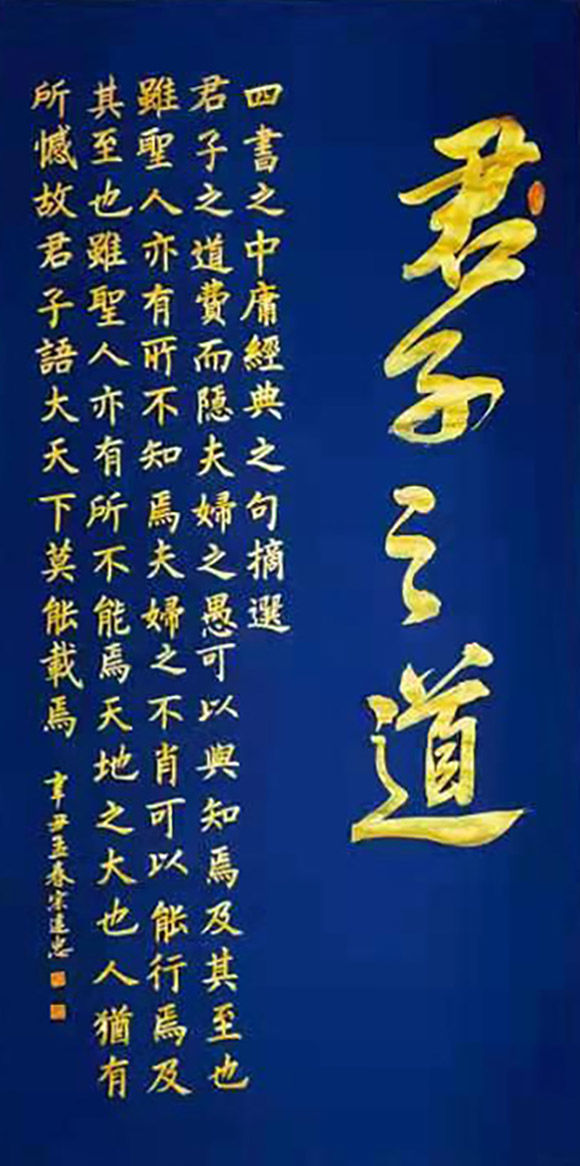 君子之道
四書之中庸經典之句摘選
君子之道費而隱夫婦之愚可以與知焉及其至也
雖聖人亦有所不知焉夫婦之不肖可以能行焉及
其至也雖聖人亦有所不能焉天地之大也人猶有
所憾故君子語大天下莫能載焉
辛丑孟春